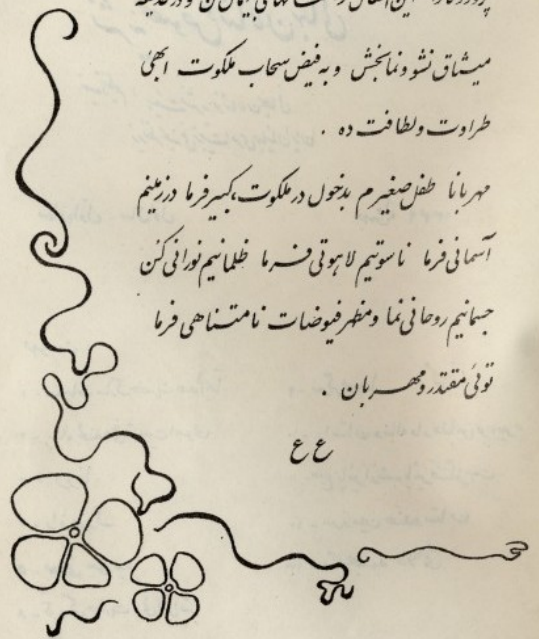 میثاق نشو و نما بخش و به فیض سحاب ملکوت ابهیٰ
طراوت و لطافت ده .
مهربانا طفل صغیرم بدخول در ملکوت، کبیر فرما در زمینم
آسمانی فرما ناسوتیم لاهوتی فرما ظلمانیم نورانی کن
جسمانیم روحانی نما و مظهر فیوضات نامتناهی فرما
توئی مقتدر و مهربان .
ع ع